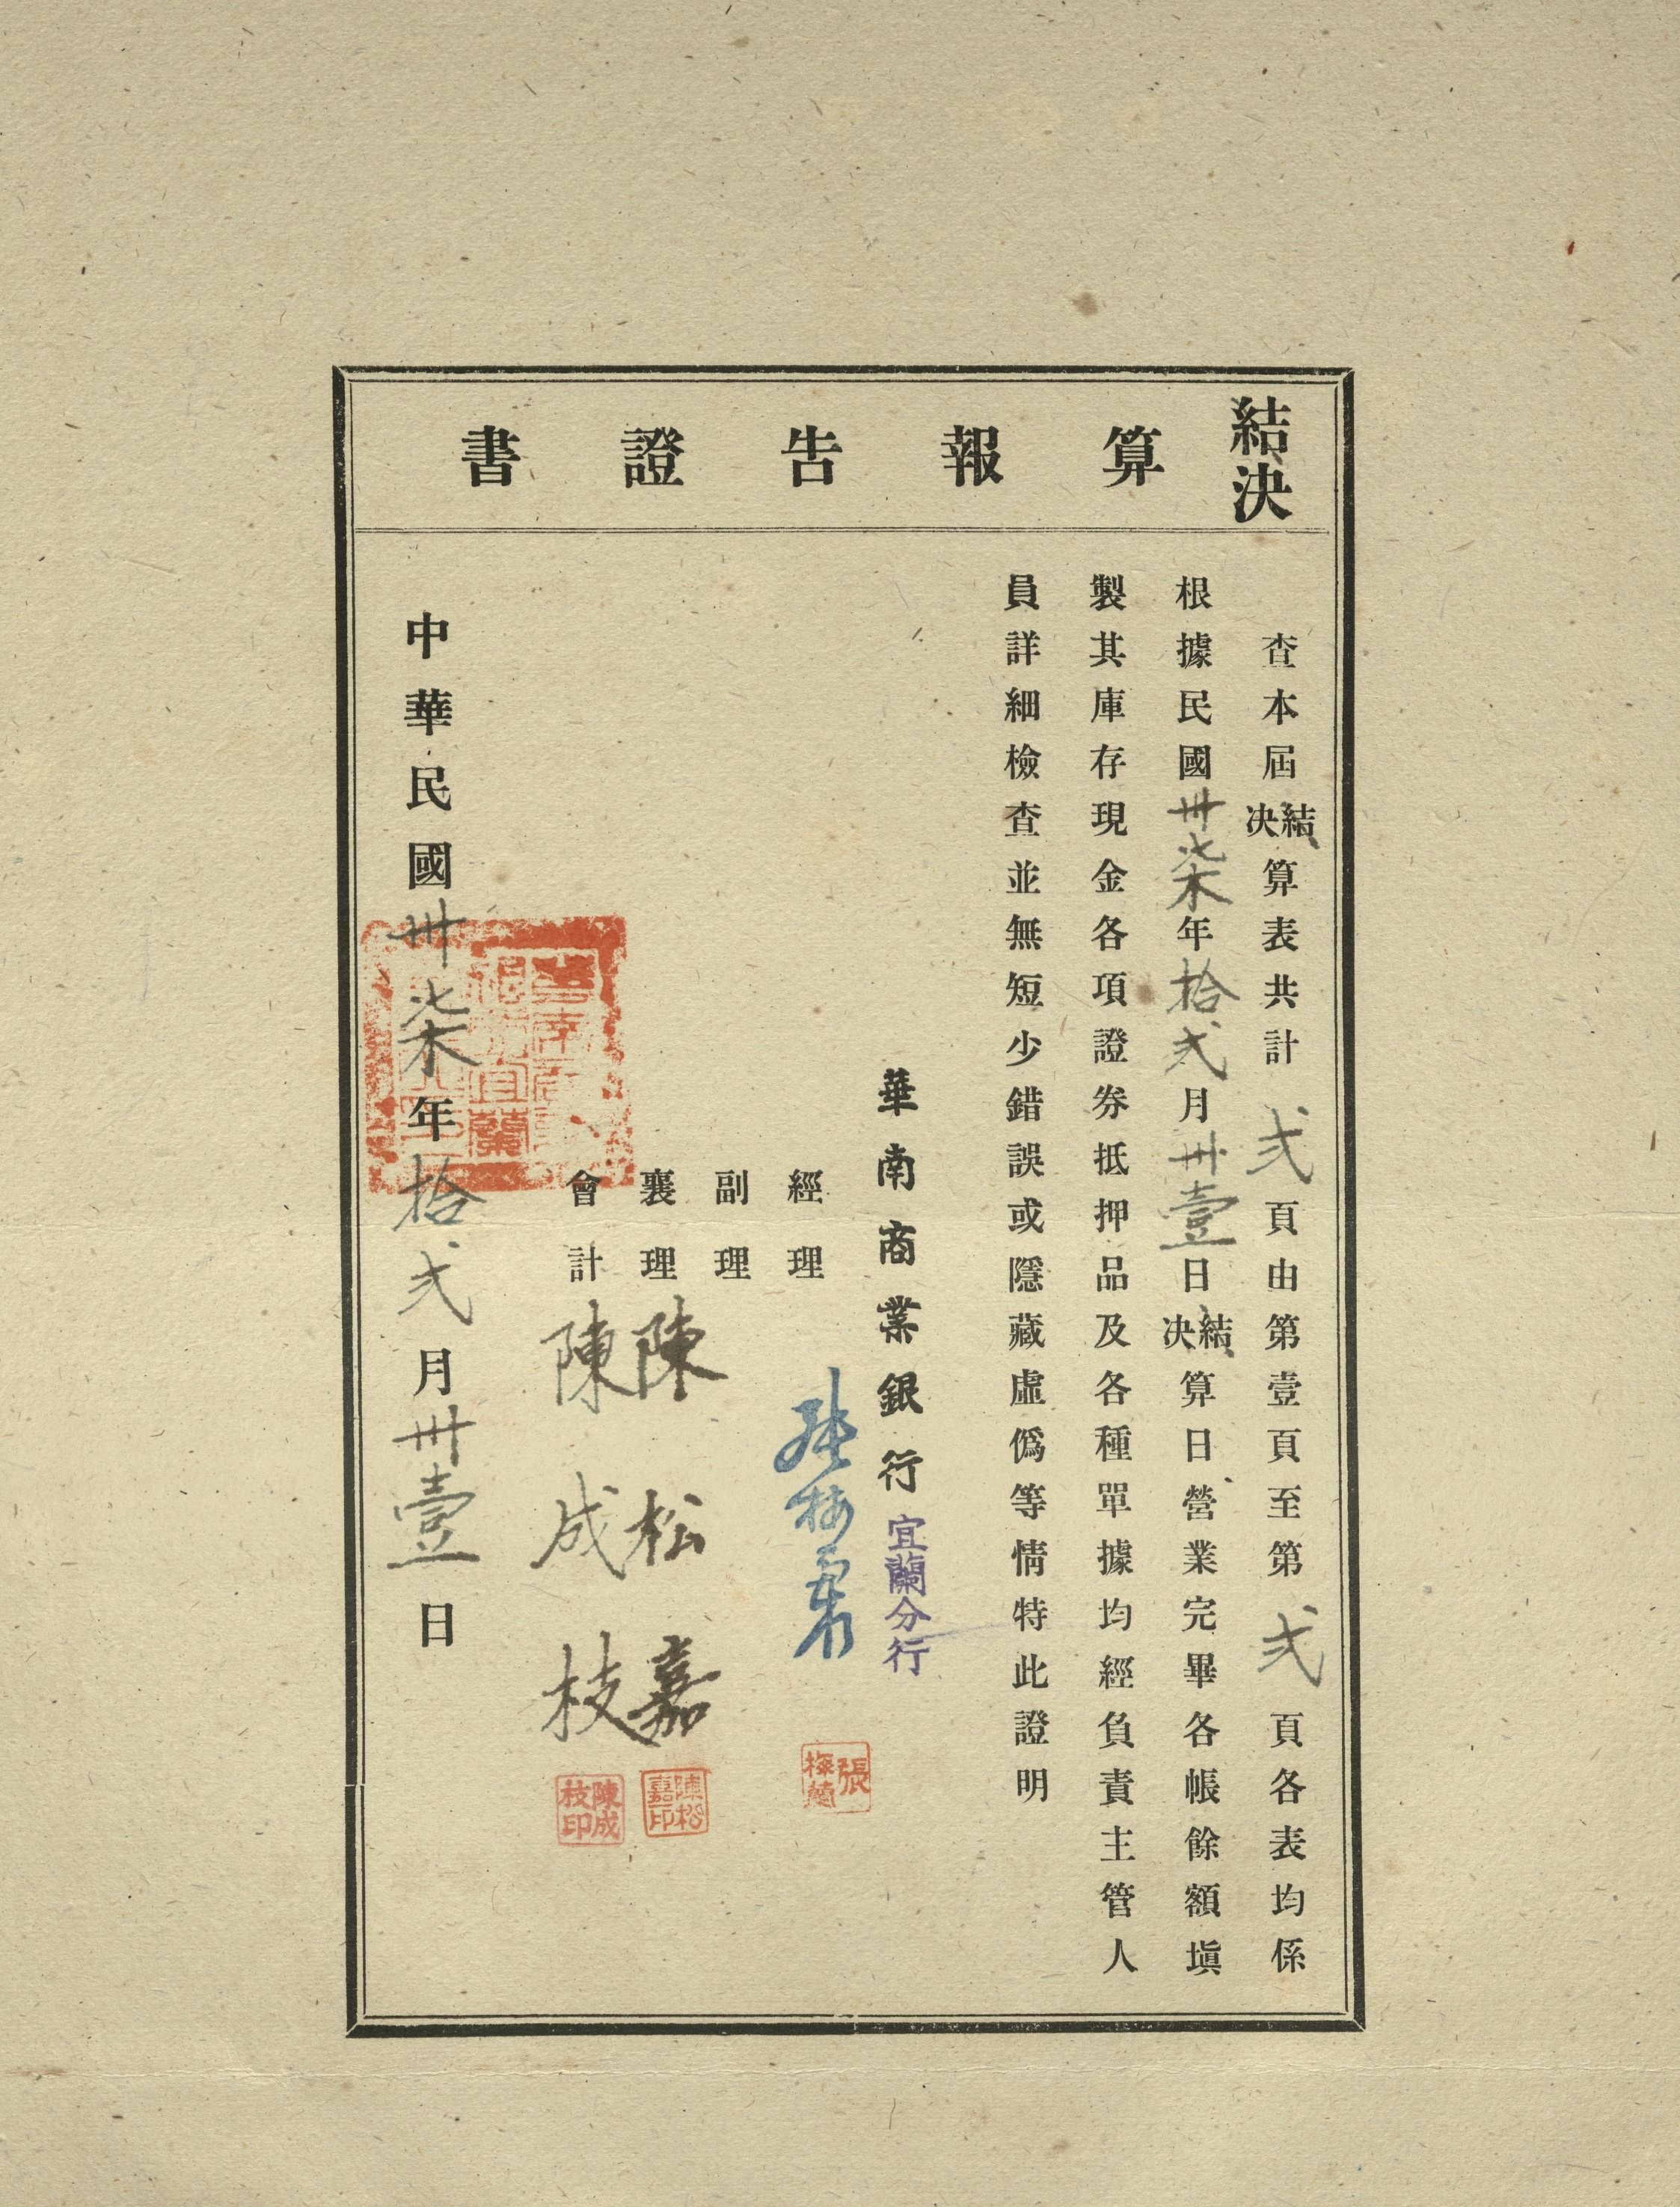 結決算報告證書
查本屆結決算表共計弍頁由第壹頁至第弍頁各表均係
根據民國卅柒年拾弍月卅壹日結決算日營業完畢各帳餘額塡
製其庫存現金各項證券抵押品及各種單據均經負責主管人
員詳細檢查並無短少錯誤或隱藏虛僞等情特此證明
華南商業銀行宜蘭分行
經理 張梅蘭
張梅蘭
副理
襄理 陳松嘉
陳松嘉印
會計 陳成枝
陳成枝印
中華民國卅柒年拾弍月卅壹日